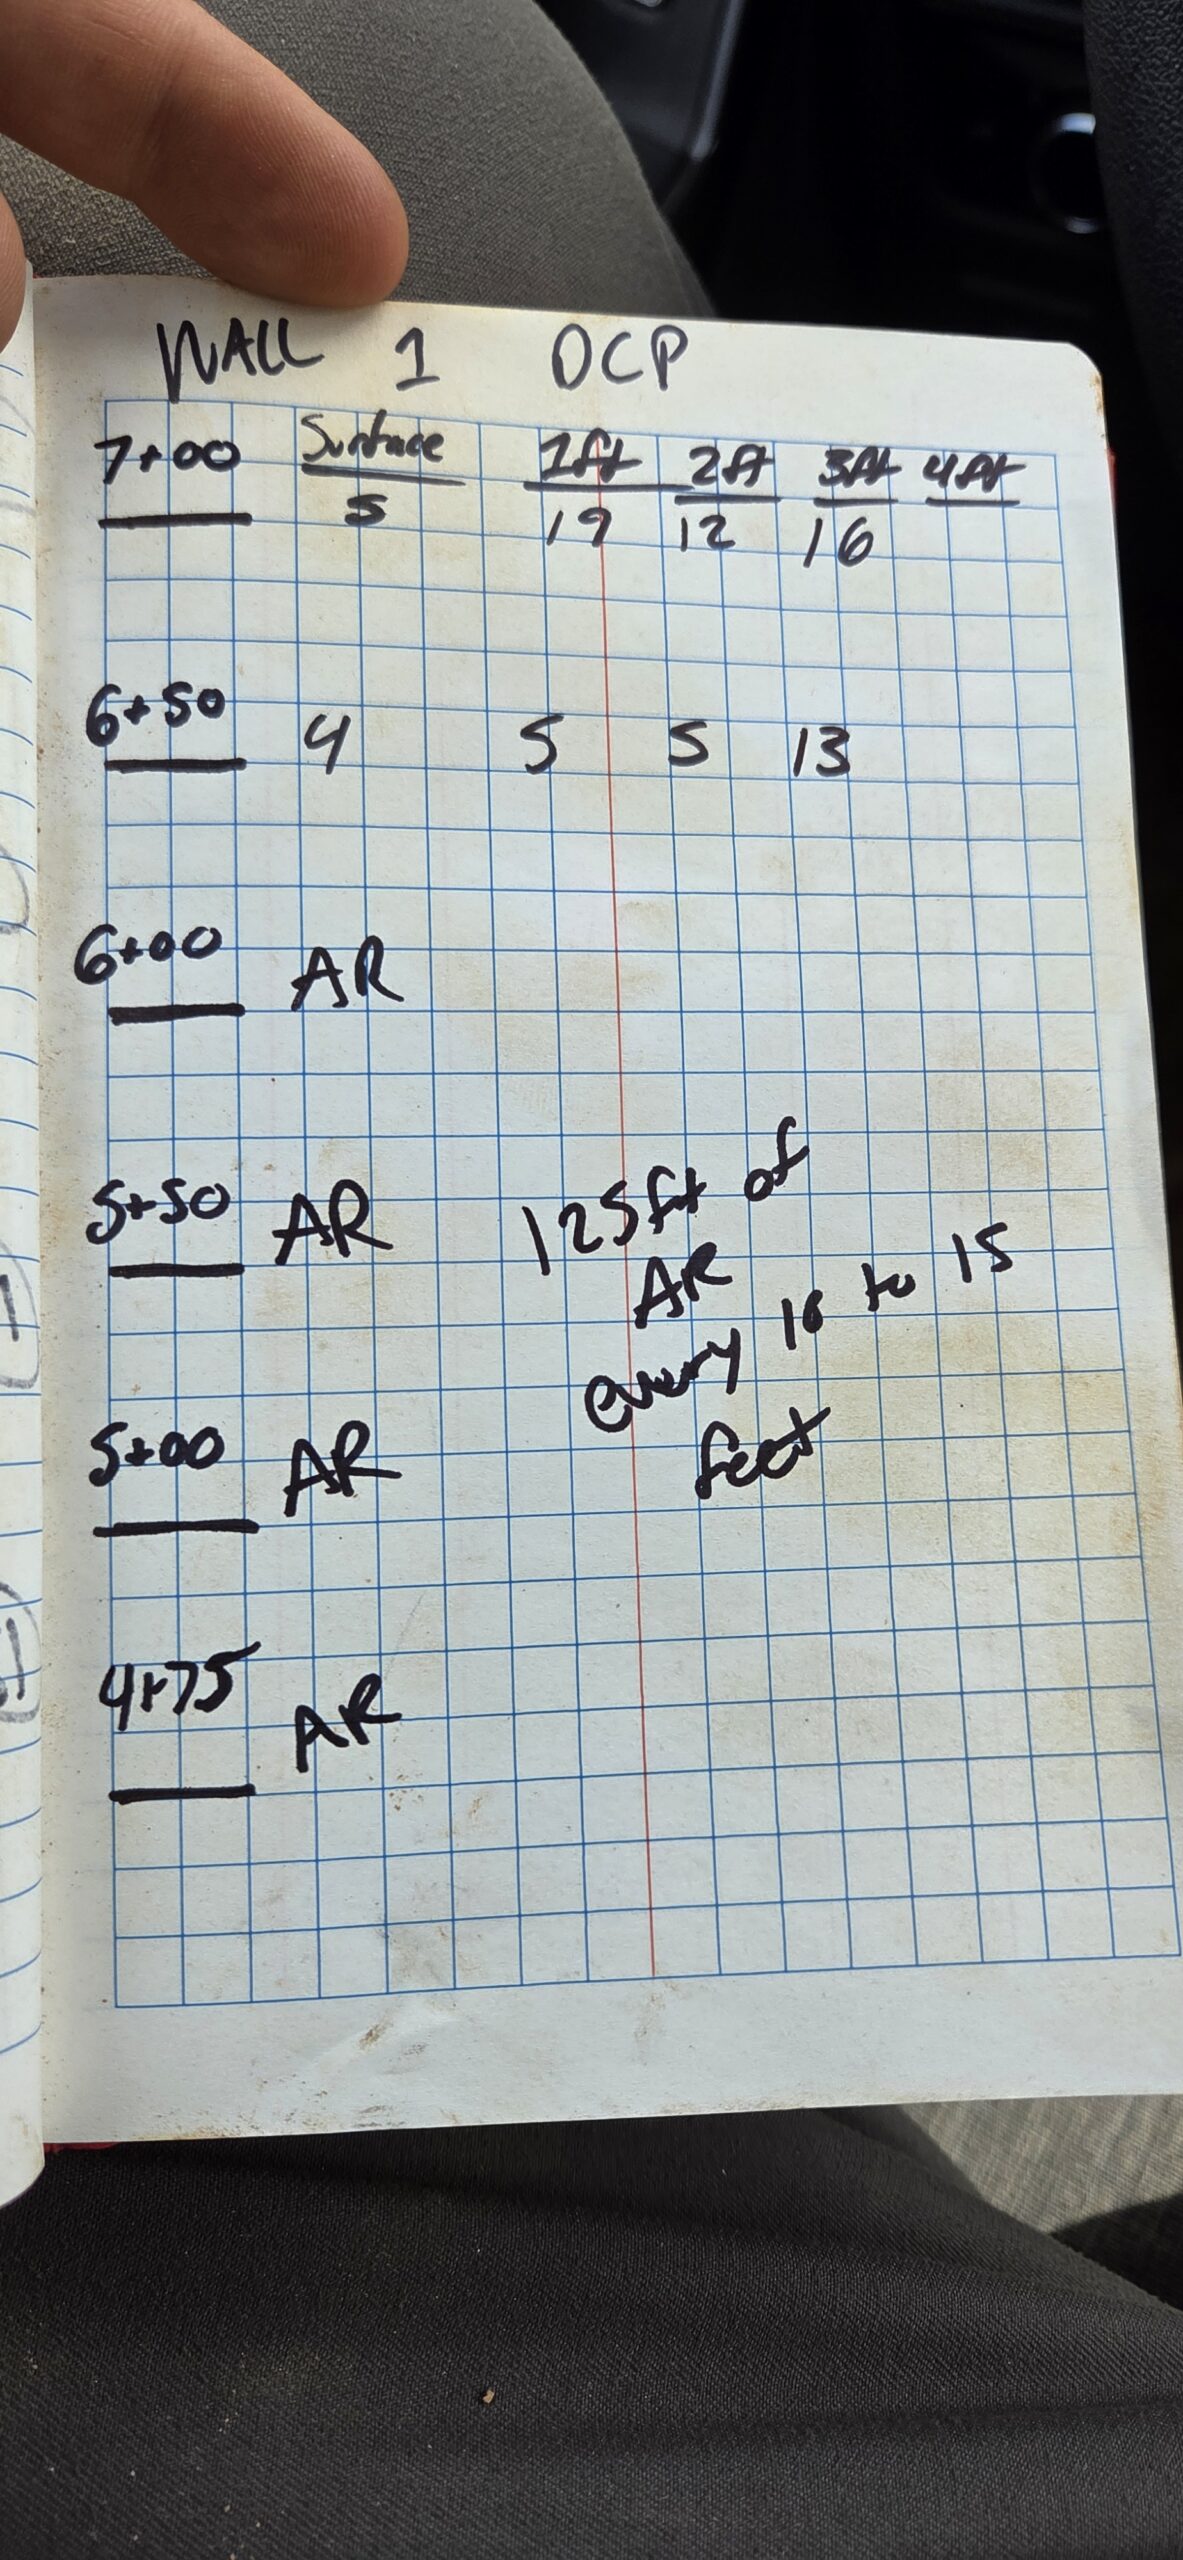 WALL 1 DCP
7+00 Surface 1ft 2ft 3ft 4ft
5 19 12 16
6+50 4 5 5 13
6+00 AR
5+50 AR 125ft of
AR
every 10 to 15
feet
5+00 AR
4+75 AR